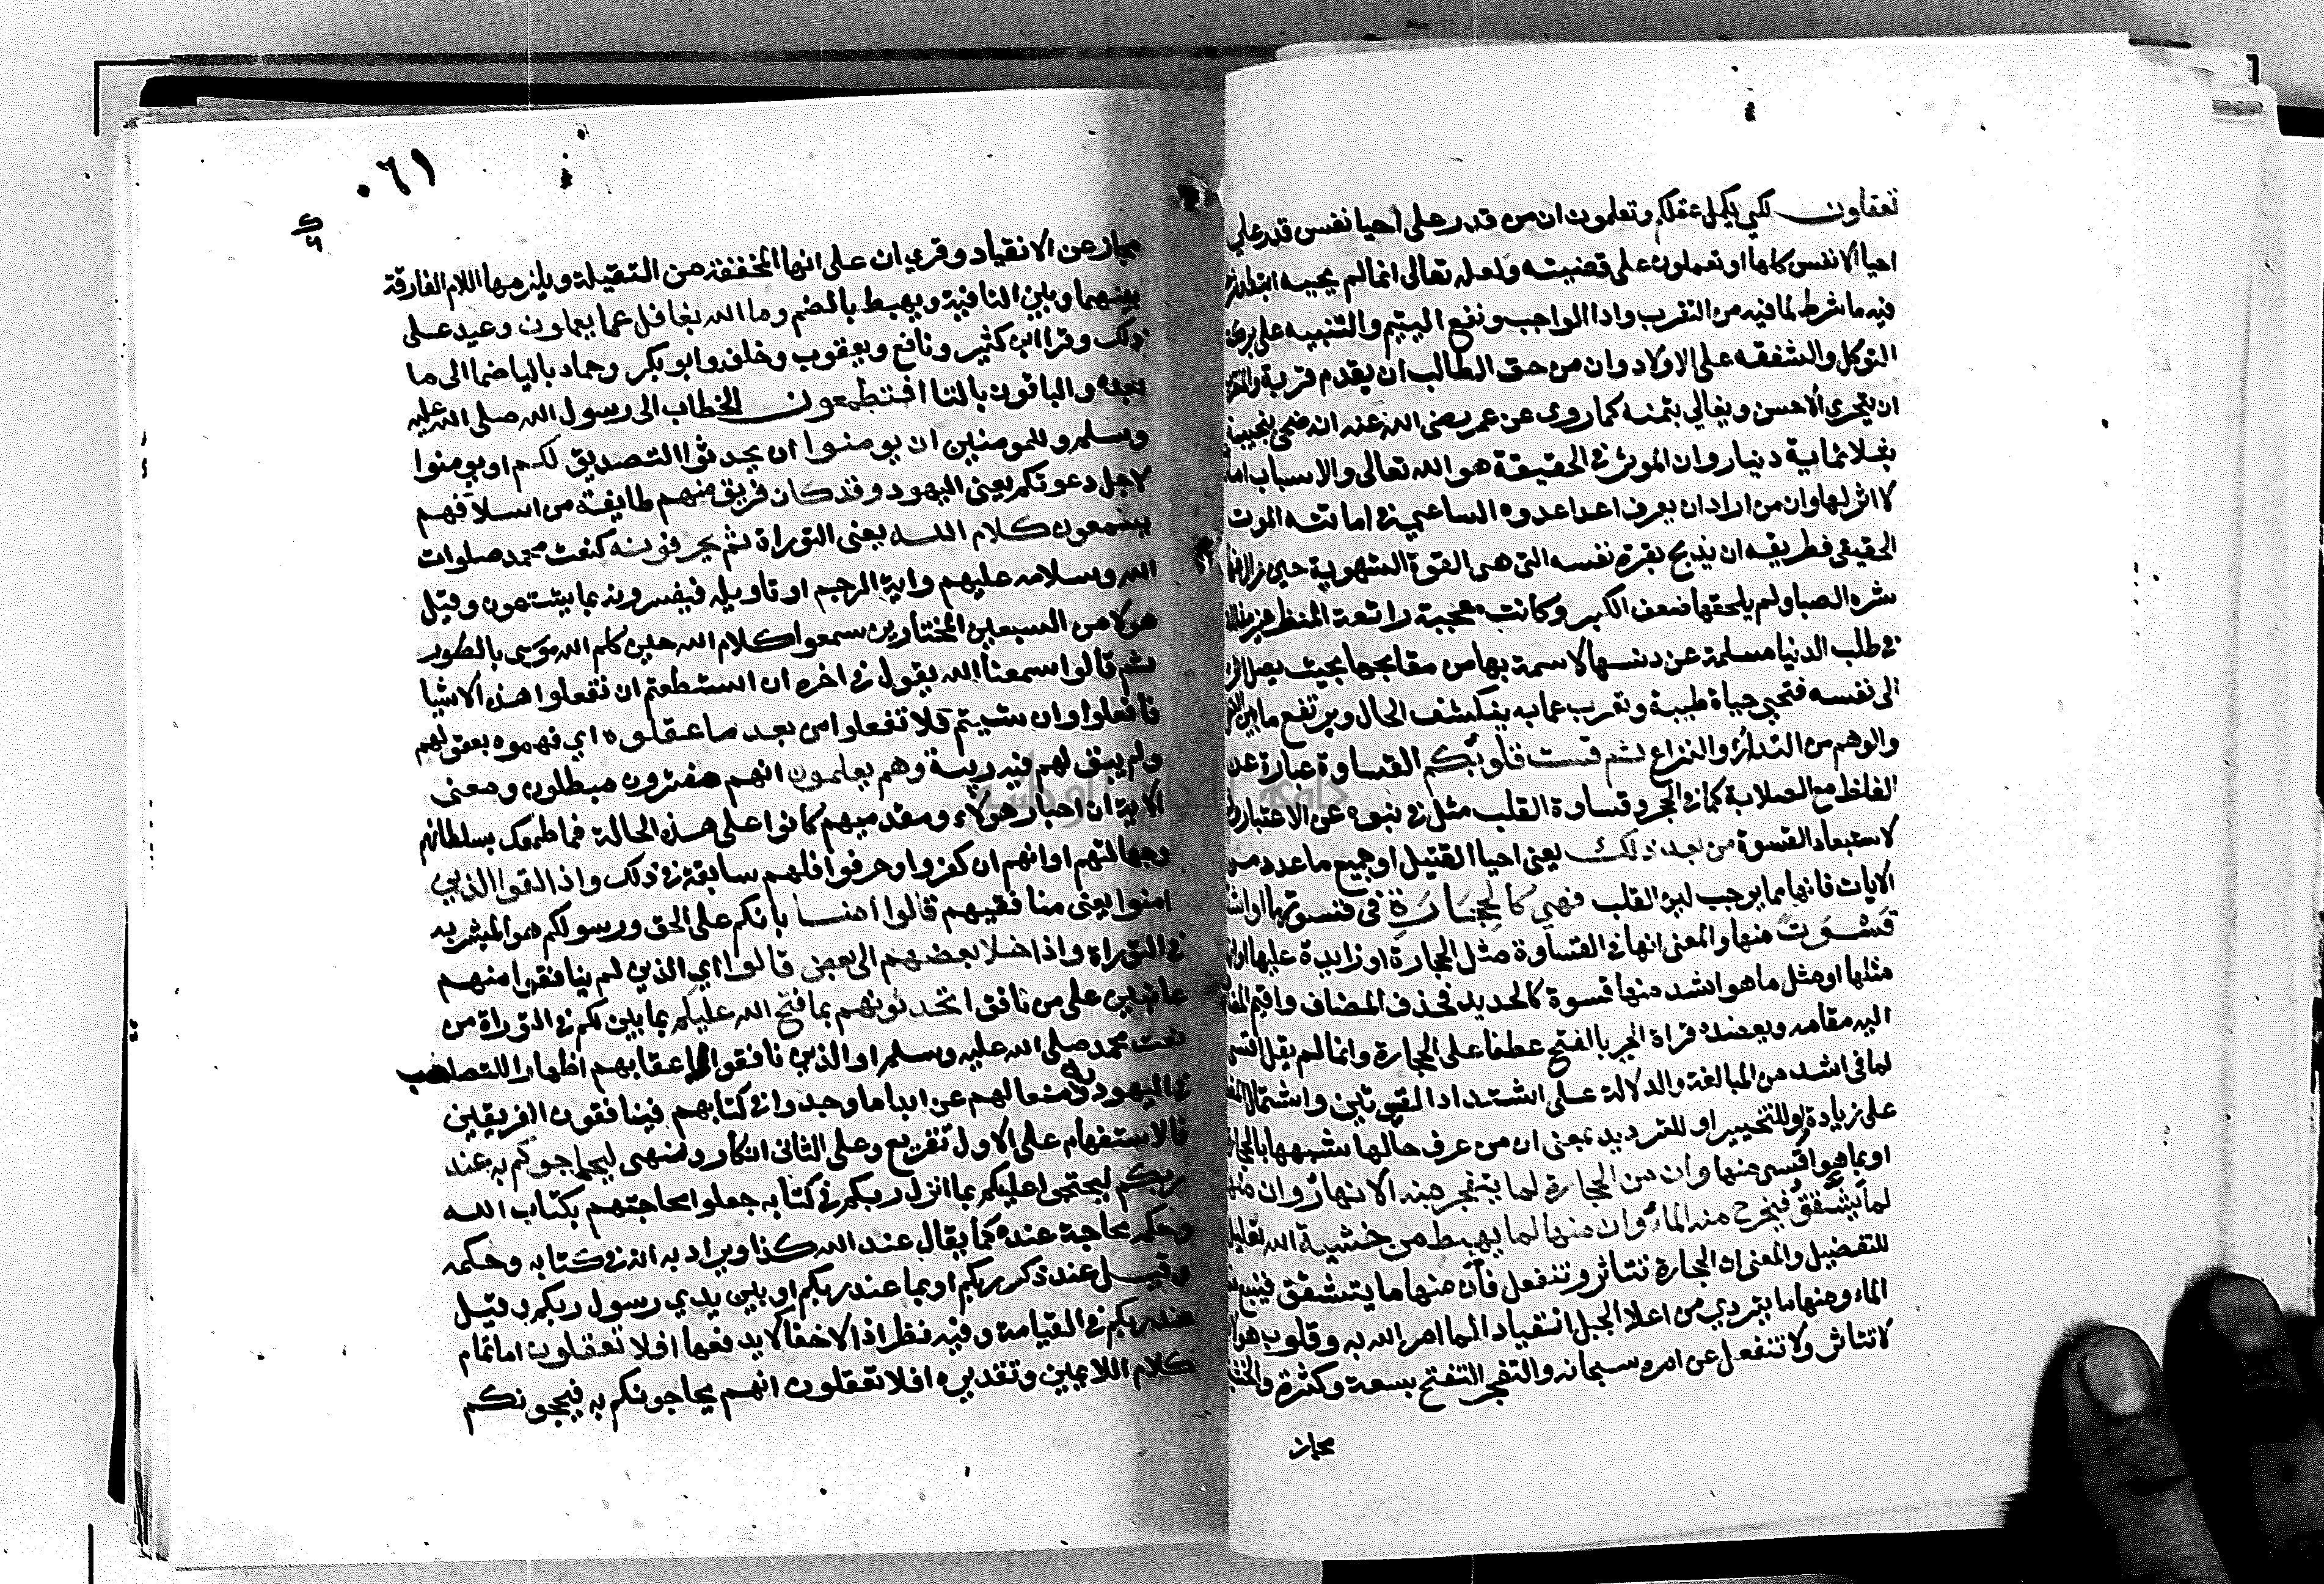 تعقلون لكي يكمل عقلكم وتعلمون ان من قدر على احيا نفس قدر علي
احيا الانفس كلها او تعملون على قضيته ولعله تعالى انما لم يحيه ابتدا
فيه ما شرط لما فيه من التقرب واداالواجب ونفع اليتيم والتنبيه على بركة
التوكل والشفقه على الاولاد وان من حق الطالب ان يقدم قربة
ان يتحري الاحسن ويغالي بثمنه كما روى عن عمر رضى الله عنه انه ضحى بنجيبة
بثلاثماية دينار وان الموثر في الحقيقة هو الله تعالى والاسباب
لا اثر لها وان من اراد ان يعرف اعدا عدوه الساعي في اماتته الموت
الحقيقي فطريقه ان يذبح بقرة نفسه التي هي القوة الشهوية حين زال
شره الصبا ولم يلحقها ضعف الكبر وكانت معجبة رائعة المنظر غير
في طلب الدنيا مسلمة عن دنسها لاسمة بها من مقابحها بحيث يصل
الى نفسه فتحيى حياة طيبة وتعرب عما به ينكشف الحال ويرتفع ما بين
والوهم من التدارؤ والنزاع ثم قست قلوبكم القساوة عبارة عن
الغلظ مع الصلابة كما في الحجر وقساوة القلب مثل في نبوه عن الاعتبار
لاستبعاد القسوة من بعد ذلك يعنى احيا القتيل او جميع ما عدد من
الايات فانها مما يوجب لين القلب فهي كالحجارة في قسوتها او اشد
قسوة منها والمعنى انها في القساوة مثل الحجارة او زايدة عليها
مثلها او مثل ما هو اشد منها قسوة كالحديد فحذف المضاف واقيم
اليه مقامه ويعضده قراة الجر بالفتح عطفا على الحجارة وانما لم يقل
لما في اشد من المبالغة والدلالة على اشتداد القسوتين واشتمال
على زيادة واو للتخيير او للترديد بمعنى ان من عرف حالها شبهها
او بما هو اقسى منها وان من الحجارة لما يتفجر منه الانهار وان منها
لما يشقق فيخرج منه الماء وان منها لما يهبط من خشية الله تعليل
للتفضيل والمعنى ان الحجارة تتاثر وتنفعل فان منها ما يتشقق فينبع
الماء ومنها ما يتردي من اعلا الجبل انقيادا لما امر الله به وقلوب
لا تتاثر ولا تنفعل عن امره سبحانه والتفجر التفتح بسعة وكثرة
مجاز
٠٦١
مجاز عن الانقياد وقري ان على انها المخففة من الثقيلة ويلزمها اللام الفارقة
بينهما وبين النافية ويهبط بالضم وما الله بغافل عما يعملون وعيد على
ذلك وقرا ابن كثير ونافع ويعقوب وخلف وابو بكر وحماد باليا ضما الى ما
بعده والباقون بالتا افتطمعون الخطاب الى رسول الله صلى الله عليه
وسلم وللمومنين ان يومنوا ان يحدثوا التصديق لكم او يومنوا
لاجل دعوتكم يعنى اليهود وقد كان فريق منهم طايفة من اسلافهم
يسمعون كلام الله يعنى التوراة ثم يحرفونه كنعت محمد صلوات
الله وسلامه عليهم واية الرجم او تاويله فيفسرونه بما يشتهون وقيل
هولا من السبعين المختارين سمعوا كلام الله حين كلم الله موسى بالطور
ثم قالوا سمعنا الله يقول في اخره ان استطعتم ان تفعلوا هذه الاشيا
فافعلوا وان شيتم فلا تفعلوا من بعد ما عقلوه اي فهموه بعقولهم
ولم يبق لهم فيه ريبة وهم يعلمون انهم مفترون مبطلون ومعنى
الاية ان احبار هولاء ومقدميهم كانوا على هذه الحالة فما طمعك بسلفانهم
وجهالتهم او انهم ان كفروا وحرفوا فلهم سابقة في ذلك واذا لقوا الذين
امنوا يعنى منافقيهم قالوا امنا بانكم على الحق ورسولكم هو المبشر به
في التوراة واذا خلا بعضهم الى بعض قالوا اي الذين لم ينافقوا منهم
عاتبين على من نافق اتحدثونهم بما فتح الله عليكم بما بين لكم في التوراة من
نعت محمد صلى الله عليه وسلم او الذين نافقوا لاعقابهم اظهارا للتصلب
في اليهودية ومنعا لهم عن ابدا ما وجدوا في كتابهم فينافقون الفريقين
فالاستفهام على الاول تقريع وعلى الثانى انكار ونهى ليحاجوكم به عند
ربكم ليحتجوا عليكم بما انزل ربكم في كتابه جعلوا محاجتهم بكتاب الله
وحكمه محاجة عنده كما يقال عند الله كذا ويراد به انه في كتابه وحكمه
وقيل عند ذكر ربكم او بما عند ربكم او بين يدي رسول ربكم وقيل
عند ربكم في القيامة وفيه نظر اذ الاخفا لا يدفعها افلا تعقلون اما تمام
كلام اللايمين وتقديره افلا تعقلون انهم يحاجونكم به فيحجونكم